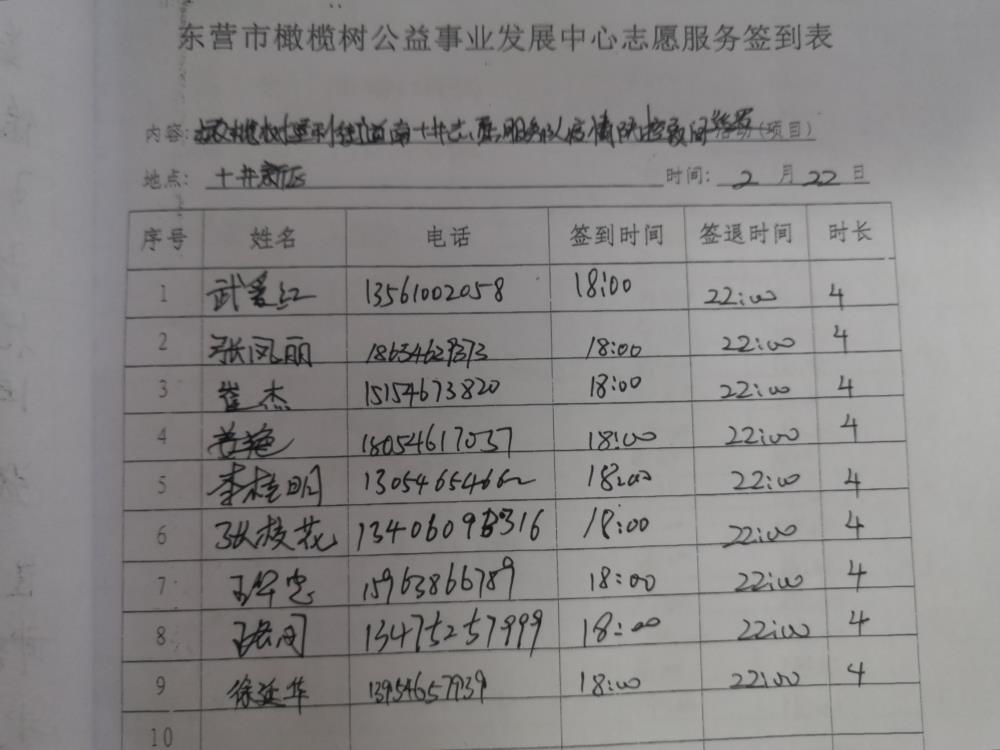 东营市橄榄树公益事业发展中心志愿服务签到表
内容: 活动(项目)
地点: 十井新区 时间: 2 月 22 日
序号 姓名 电话 签到时间 签退时间 时长
1 武爱红 13561002058 18:00 22:00 4
2 张凤丽 18:00 22:00 4
3 崔杰 15154673820 18:00 22:00 4
4 姜艳 18054617037 18:00 22:00 4
5 李桂明 18:00 22:00 4
6 张桂花 18:00 22:00 4
7 15963866789 18:00 22:00 4
8 13475257999 18:00 22:00 4
9 徐延华 13954657939 18:00 22:00 4
10